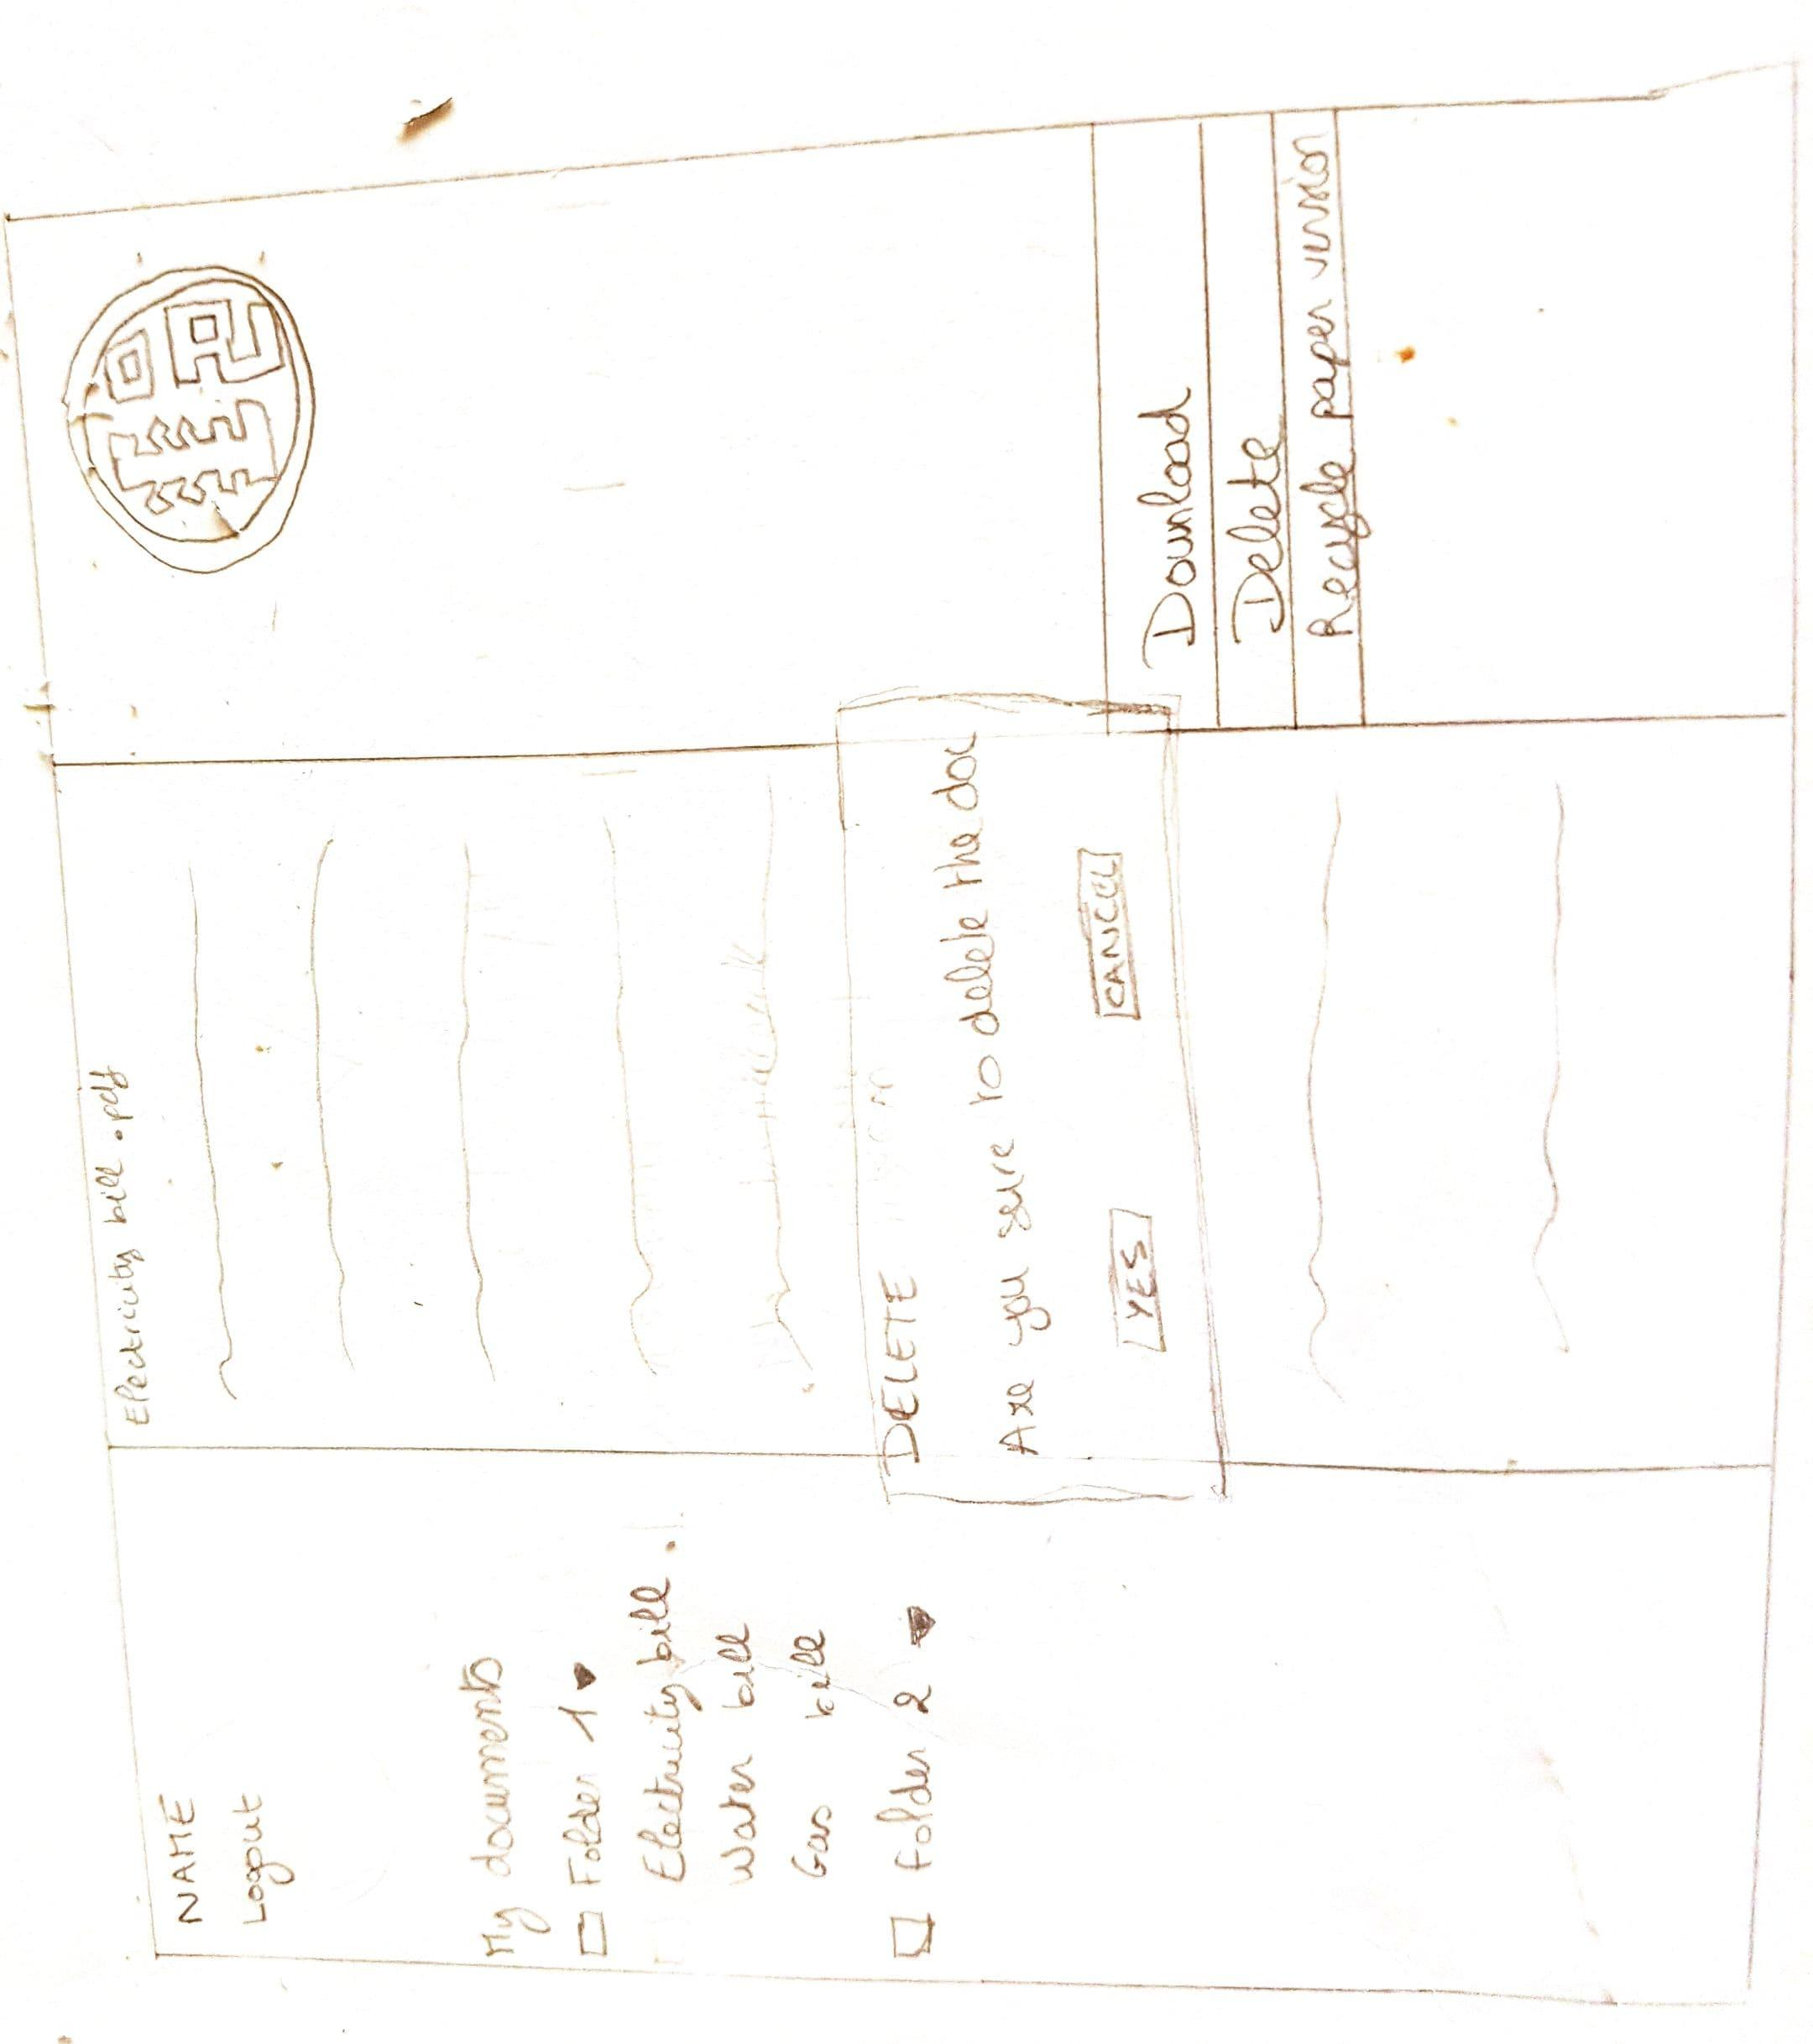 NAME
Logout
My documents
Folder 1
Electricity bill.
Water bill
Gas bill
Folder 2
Electricity bill.pdf
DELETE
Are you sure to delete the doc
YES
CANCEL
Download
Delete
Recycle paper version